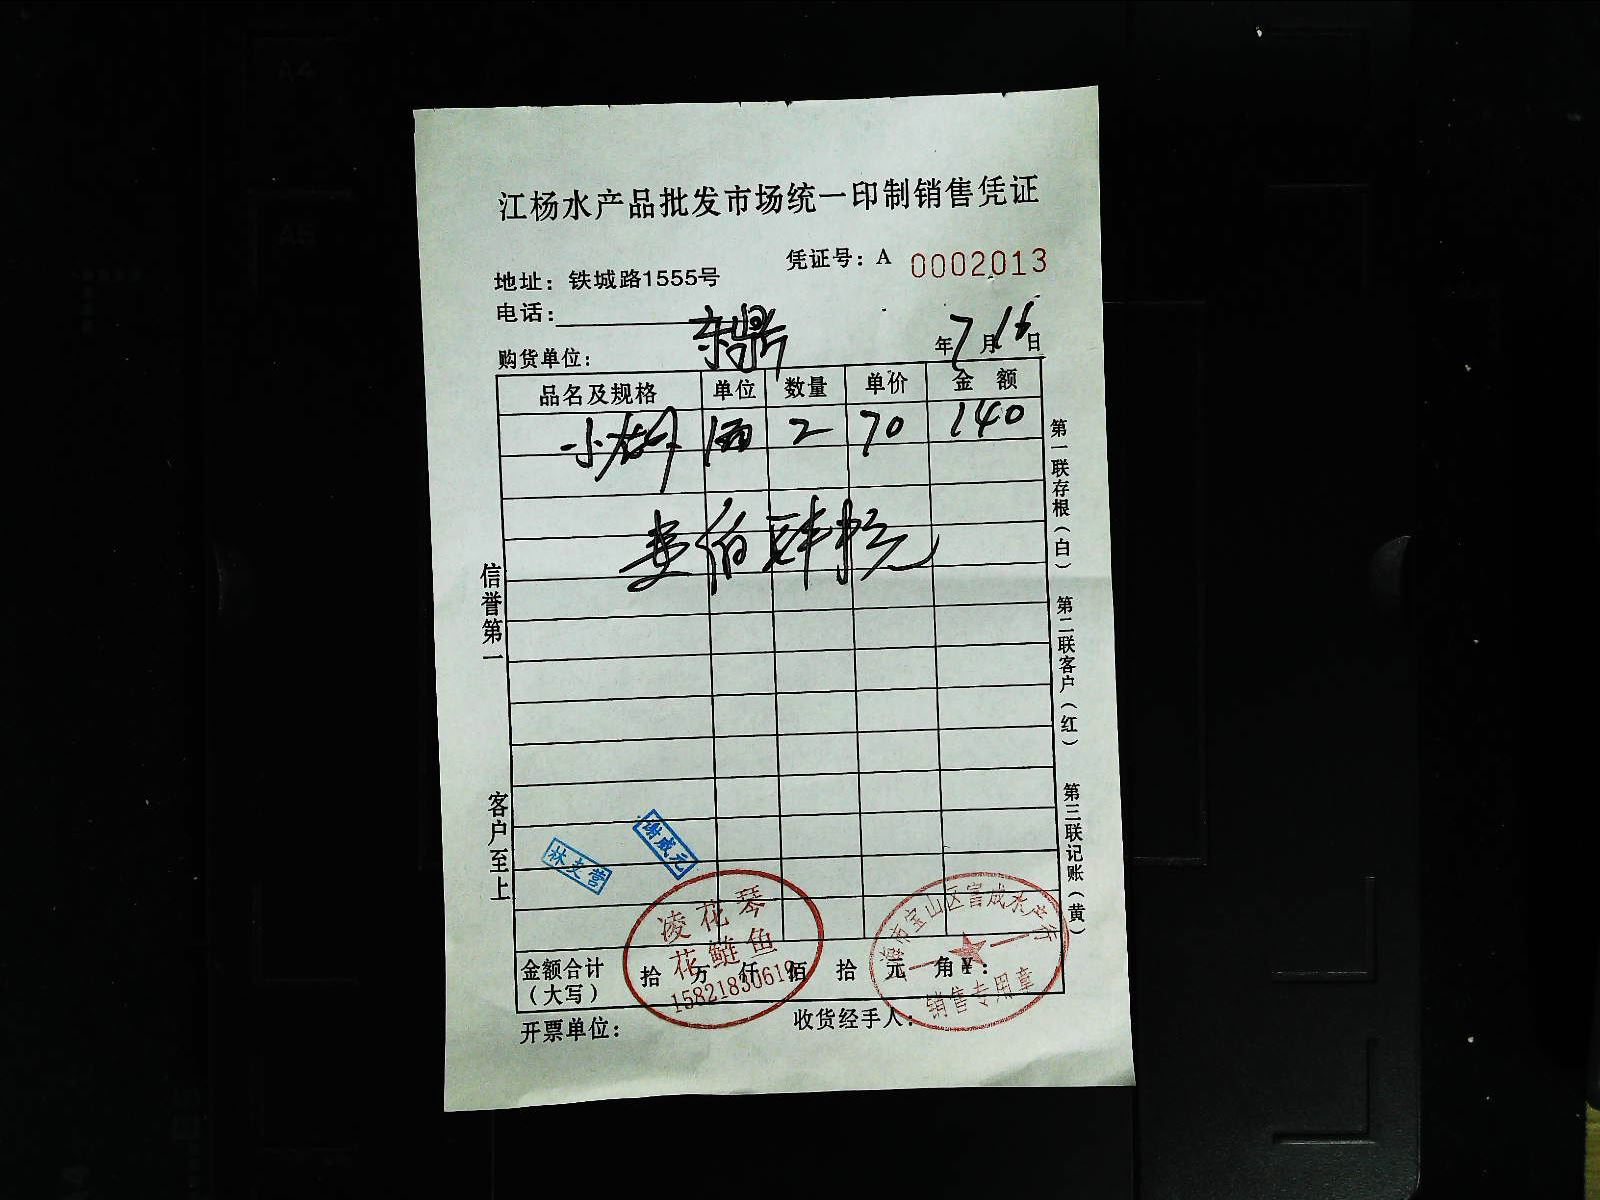 江杨水产品批发市场统一印制销售凭证
凭证号：A 0002013
地址：铁城路1555号
电话：
购货单位： 东鼎 年 7 月 16 日
品名及规格 单位 数量 单价 金 额
小 2 70 140
壹佰肆拾元
信誉第一
客户至上
第一联存根（白）
第二联客户（红）
第三联记账（黄）
谢咸元
林支营
凌花琴
花鲢鱼
上海市宝山区富成水产行
销售专用章
金额合计（大写） 拾 万 仟 佰 拾 元 角 ¥：
开票单位： 收货经手人：